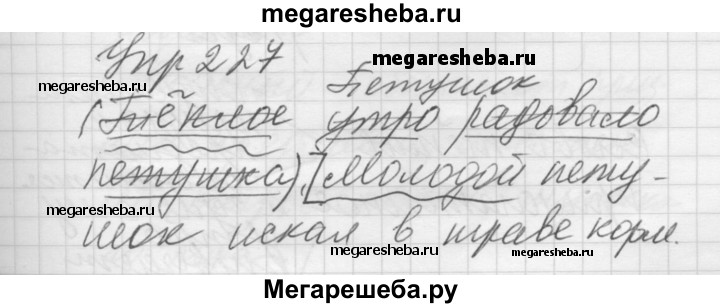 megaresheba.ru
Упр 227
megaresheba.ru
Петушок
megaresheba.ru
(Тёплое утро радовало
megaresheba.ru
петушка). [Молодой пету-
megaresheba.ru
шок искал в траве корм.
megaresheba.ru
megaresheba.ru
Мегарешеба.ру